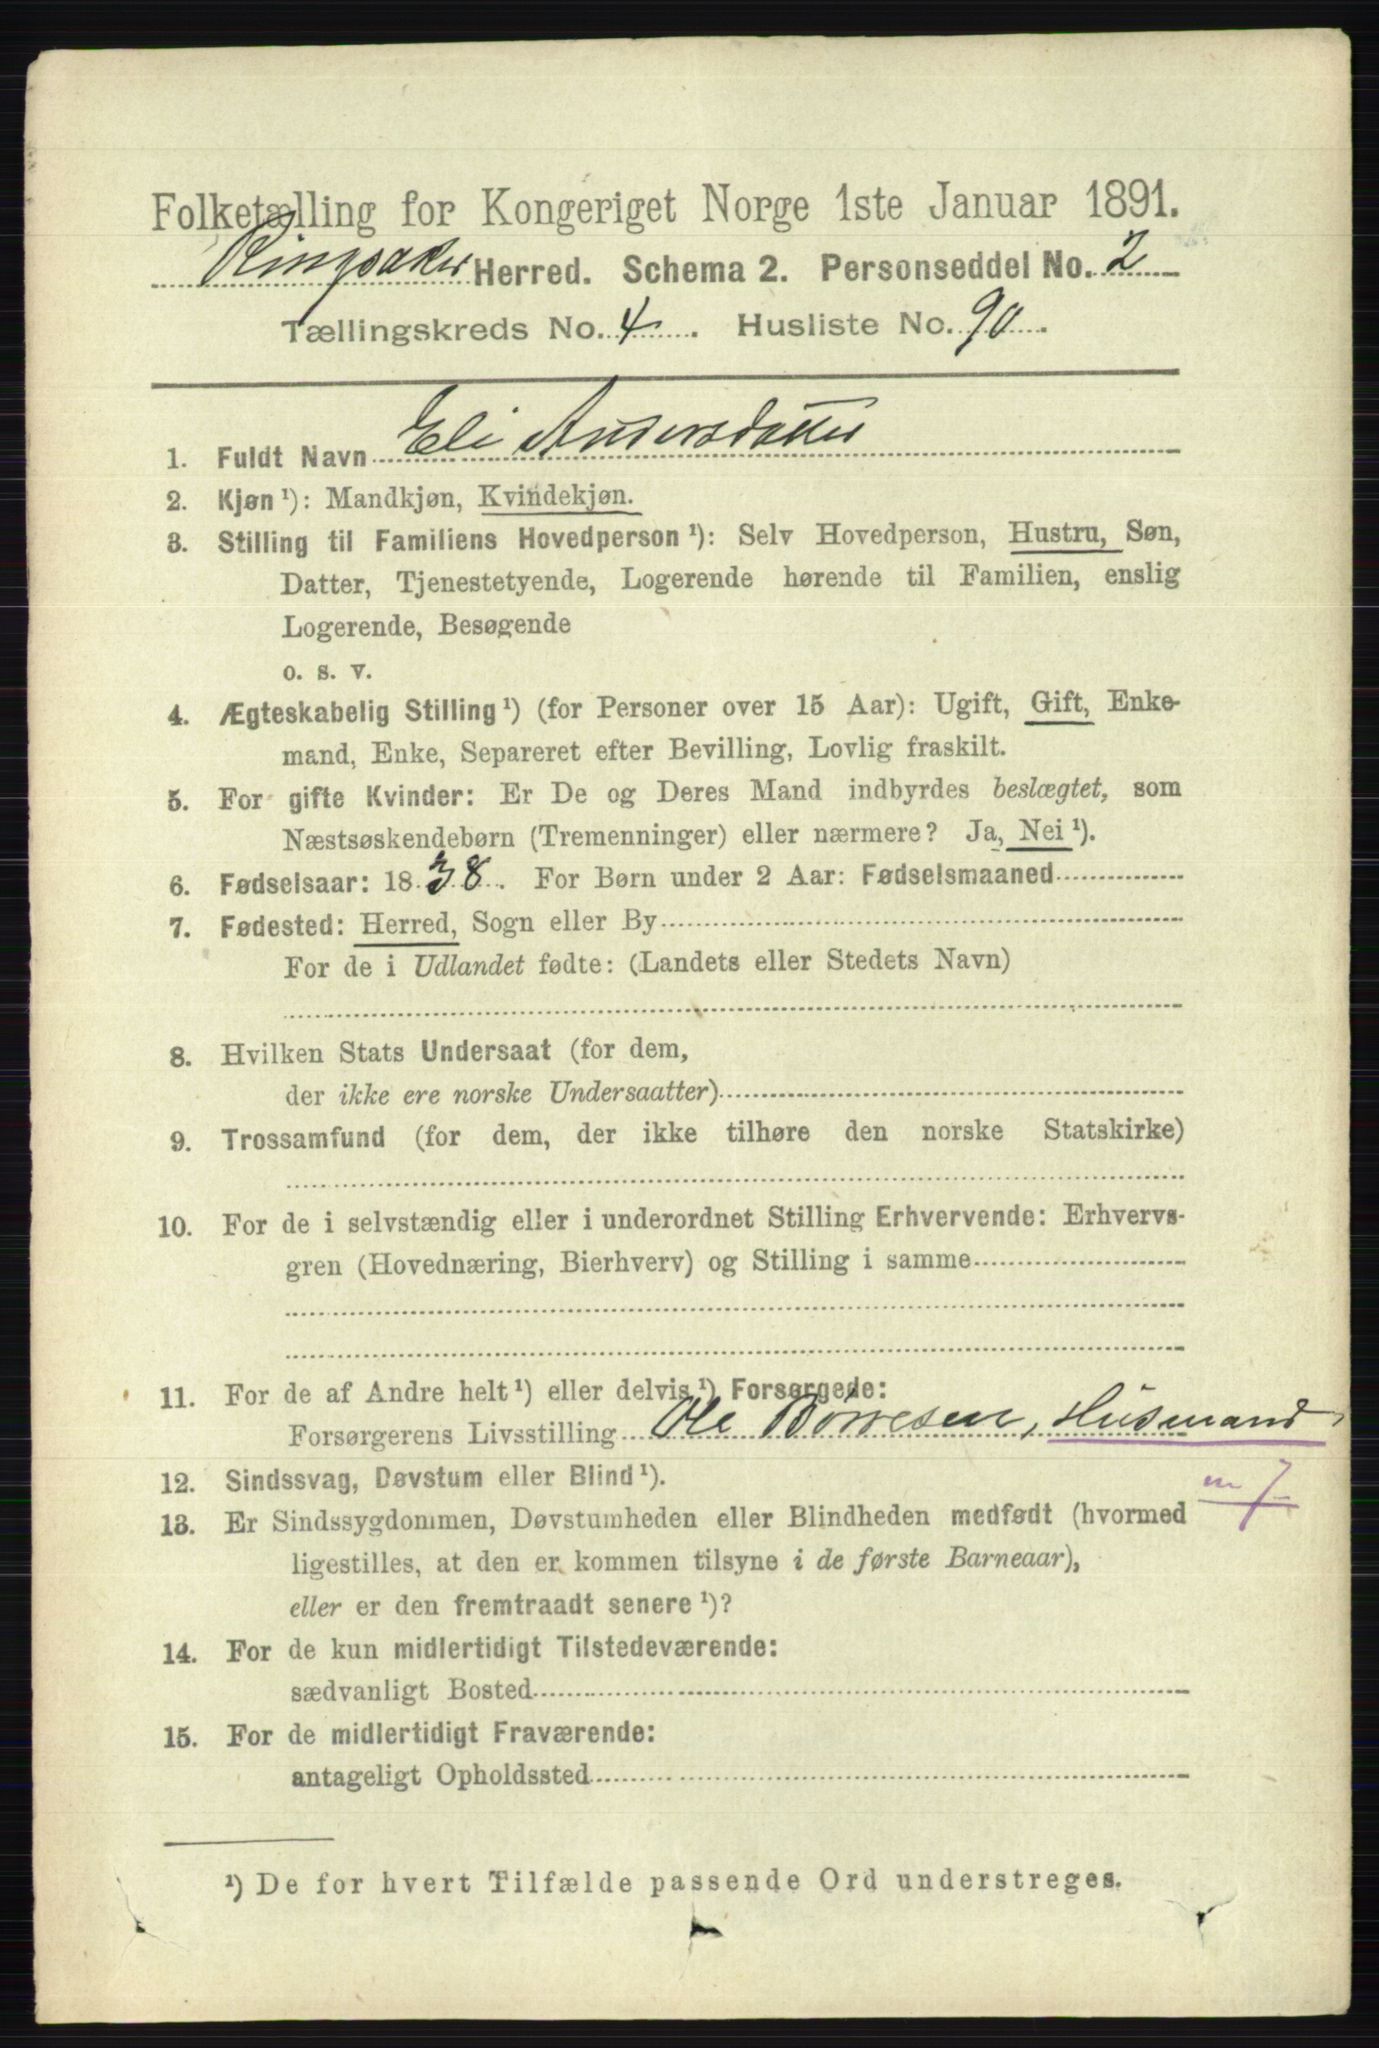 Folketælling for Kongeriget Norge 1ste Januar 1891.
Ringsaker Herred. Schema 2. Personseddel No. 2
Tællingskreds No. 4. Husliste No. 90.
1. Fuldt Navn Eli Andersdatter
2. Kjøn ¹): Mandkjøn, Kvindekjøn.
3. Stilling til Familiens Hovedperson ¹): Selv Hovedperson, Hustru, Søn,
Datter, Tjenestetyende, Logerende hørende til Familien, enslig
Logerende, Besøgende
o. s. v.
4. Ægteskabelig Stilling ¹) (for Personer over 15 Aar): Ugift, Gift, Enke-
mand, Enke, Separeret efter Bevilling, Lovlig fraskilt.
5. For gifte Kvinder: Er De og Deres Mand indbyrdes beslægtet, som
Næstsøskendebørn (Tremenninger) eller nærmere? Ja, Nei ¹).
6. Fødselsaar: 1838. For Børn under 2 Aar: Fødselsmaaned
7. Fødested: Herred, Sogn eller By
For de i Udlandet fødte: (Landets eller Stedets Navn)
8. Hvilken Stats Undersaat (for dem,
der ikke ere norske Undersaatter)
9. Trossamfund (for dem, der ikke tilhøre den norske Statskirke)
10. For de i selvstændig eller i underordnet Stilling Erhvervende: Erhvervs-
gren (Hovednæring, Bierhverv) og Stilling i samme
11. For de af Andre helt ¹) eller delvis ¹) Forsørgede:
Forsørgerens Livsstilling Ole Børresen, Husmand
m 7
12. Sindssvag, Døvstum eller Blind ¹).
13. Er Sindssygdommen, Døvstumheden eller Blindheden medfødt (hvormed
ligestilles, at den er kommen tilsyne i de første Barneaar),
eller er den fremtraadt senere ¹)?
14. For de kun midlertidigt Tilstedeværende:
sædvanligt Bosted
15. For de midlertidigt Fraværende:
antageligt Opholdssted
¹) De for hvert Tilfælde passende Ord understreges.